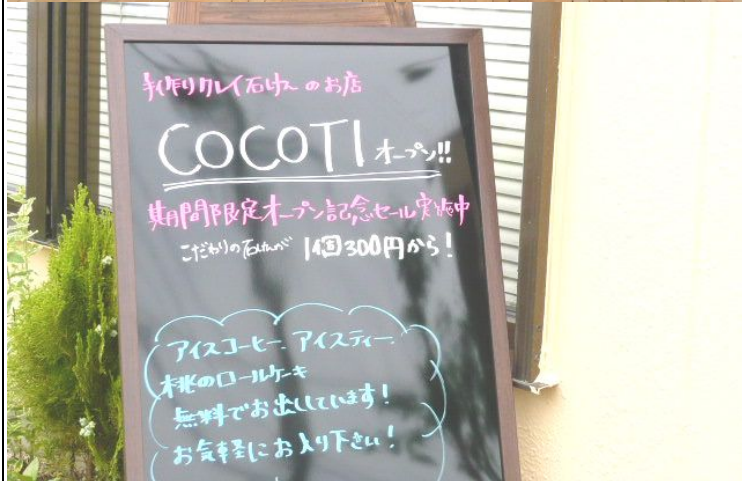 手作りクレイ石けんのお店
COCOTI オープン!!
期間限定オープン記念セール実施中
こだわりの石けんが 1個300円から!
アイスコーヒー、アイスティー、
桃のロールケーキ
無料でお出ししています!
お気軽にお入り下さい!